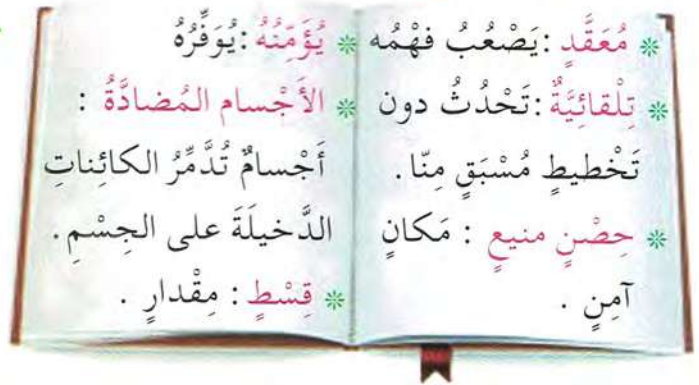 * مُعَقَّدٍ : يَصْعُبُ فهْمُه
* تِلْقائِيَّةٌ : تَحْدُثُ دون
تَخْطيطٍ مُسْبَقٍ مِنّا .
* حِصْنٍ منيعٍ : مَكانٍ
آمِنٍ .
* يُؤَمِّنُهُ : يُوَفِّرُهُ
* الأَجْسام المُضادَّةُ :
أَجْسامٌ تُدَّمِّرُ الكائِناتِ
الدَّخيلَةَ على الجِسْمِ .
* قِسْطٍ : مِقْدارٍ .